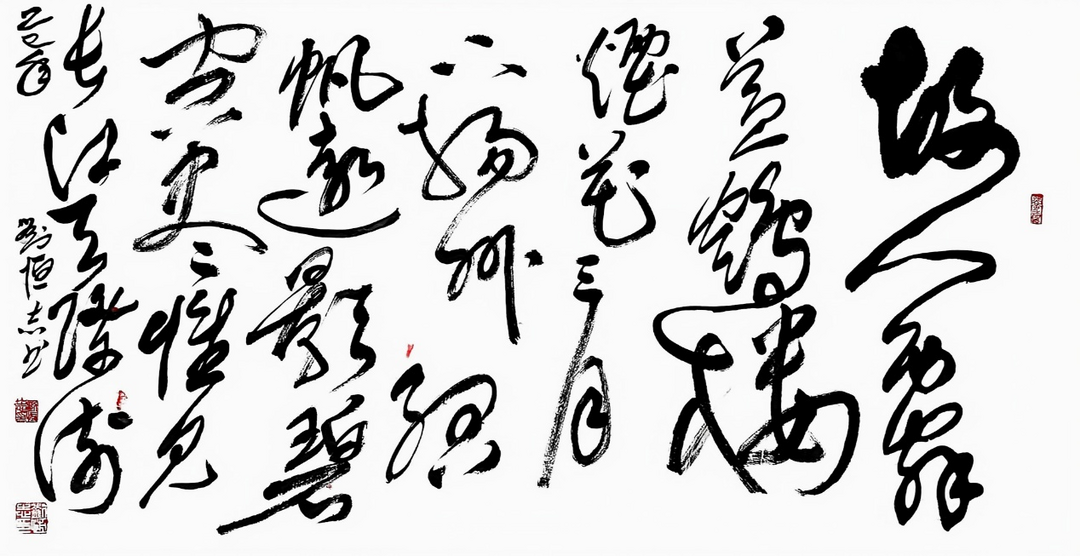 故人西辭
黃鶴樓
煙花三月
下揚州孤
帆遠影碧
空盡惟見
長江天際流
乙巳年 劉恒志書